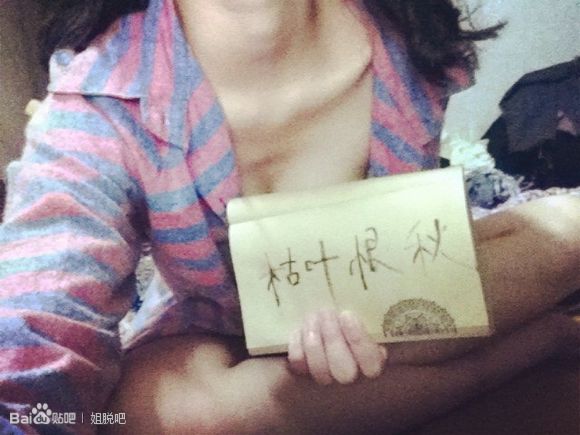 枯叶恨秋
Bai贴吧 | 姐脱吧